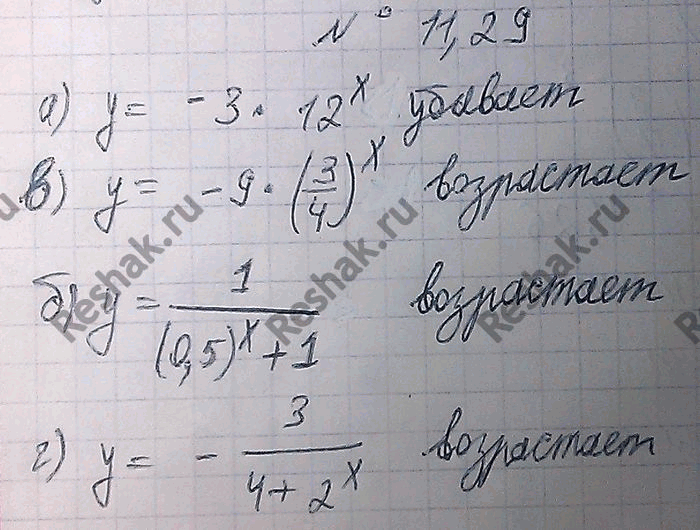 № 11,29
а) y = -3 · 12^x убывает
в) y = -9 · (3/4)^x возрастает
б) y = 1/((0,5)^x + 1) возрастает
г) y = - 3/(4 + 2^x) возрастает
Reshak.ru
Reshak.ru
Reshak.ru
Reshak.ru
Reshak.ru